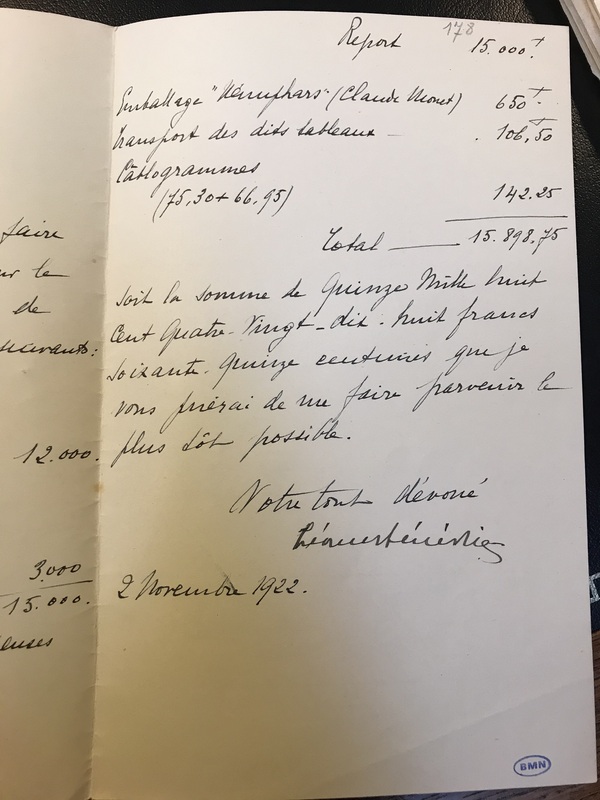 faire
ur le
de
suivants:
12.000.
3.000
15.000.
enses
178
Report 15.000.f
Emballage "Nénuphars" (Claude Monet) 650f.
Transport des dits tableaux — . 106,50
Câblogrammes
(75,30 + 66,95) 142.25
Total —— 15.898,75
soit la somme de Quinze Mille huit
Cent Quatre-Vingt-dix-huit francs
soixante-quinze centimes que je
vous prierai de me faire parvenir le
plus tôt possible.
Votre tout dévoué
Léonce Bénédite
2 Novembre 1922.
BMN